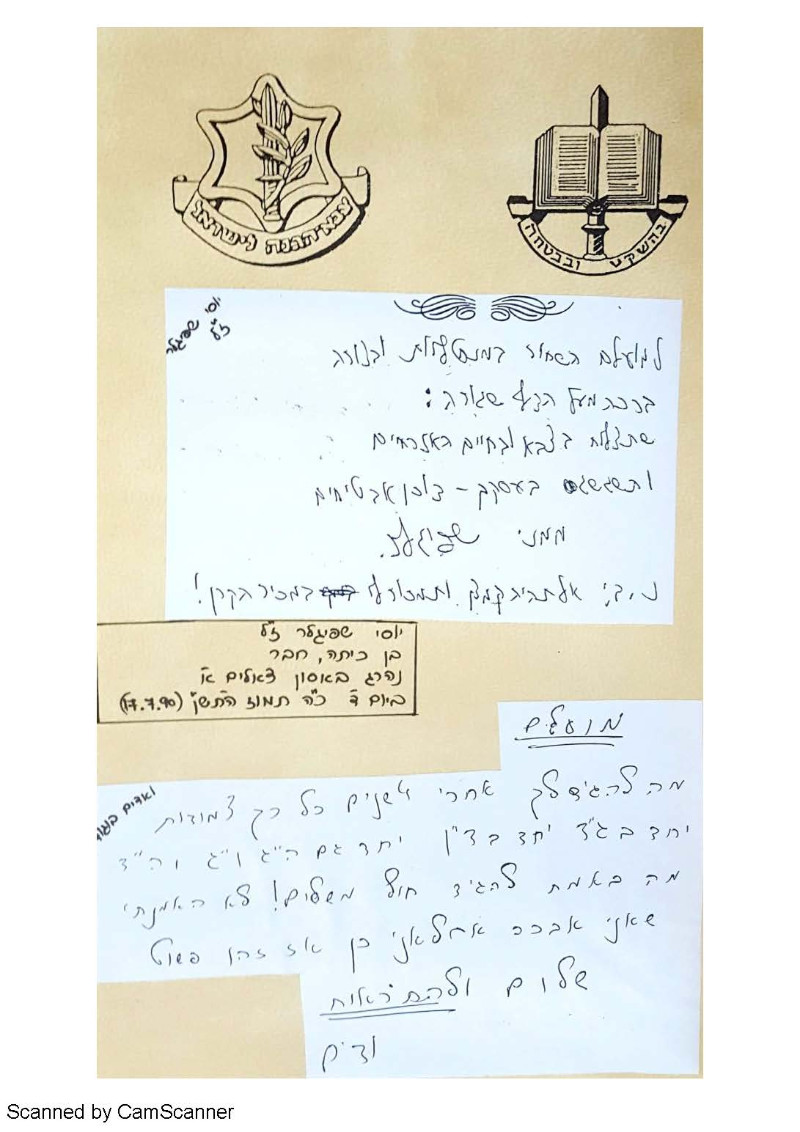 צבא הגנה לישראל
בהשקט ובבטחה
יוסי שפיגלר
ז"ל
למועלם השחור במנטליות ובנורה
ברכה מעל הדף שגורה:
שתצליח בצבא ובחיים האזרחיים
ותשגשג בעסקך - דוכן אבטיחים
ממני
נ.ב: אל תהיה קמצן ותמכור לי במחיר הקרן!
יוסי שפיגלר ז"ל
בן כיתה, חבר
נהרג באסון צאלים א'
ביום ד' כ"ה תמוז התש"ן (17.7.90)
מועלם
ואדים
מה להגיד לך אחרי 4 שנים כל כך צמודות
יחד בג"ד יחד בד"ין יחד גם ה"ג ו"ג וה"ד
מה באמת להגיד חוץ משלום! לא האמנתי
שאני אברך אבל אני כן אז זהו פשוט
שלום ולהתראות
ודים
Scanned by CamScanner